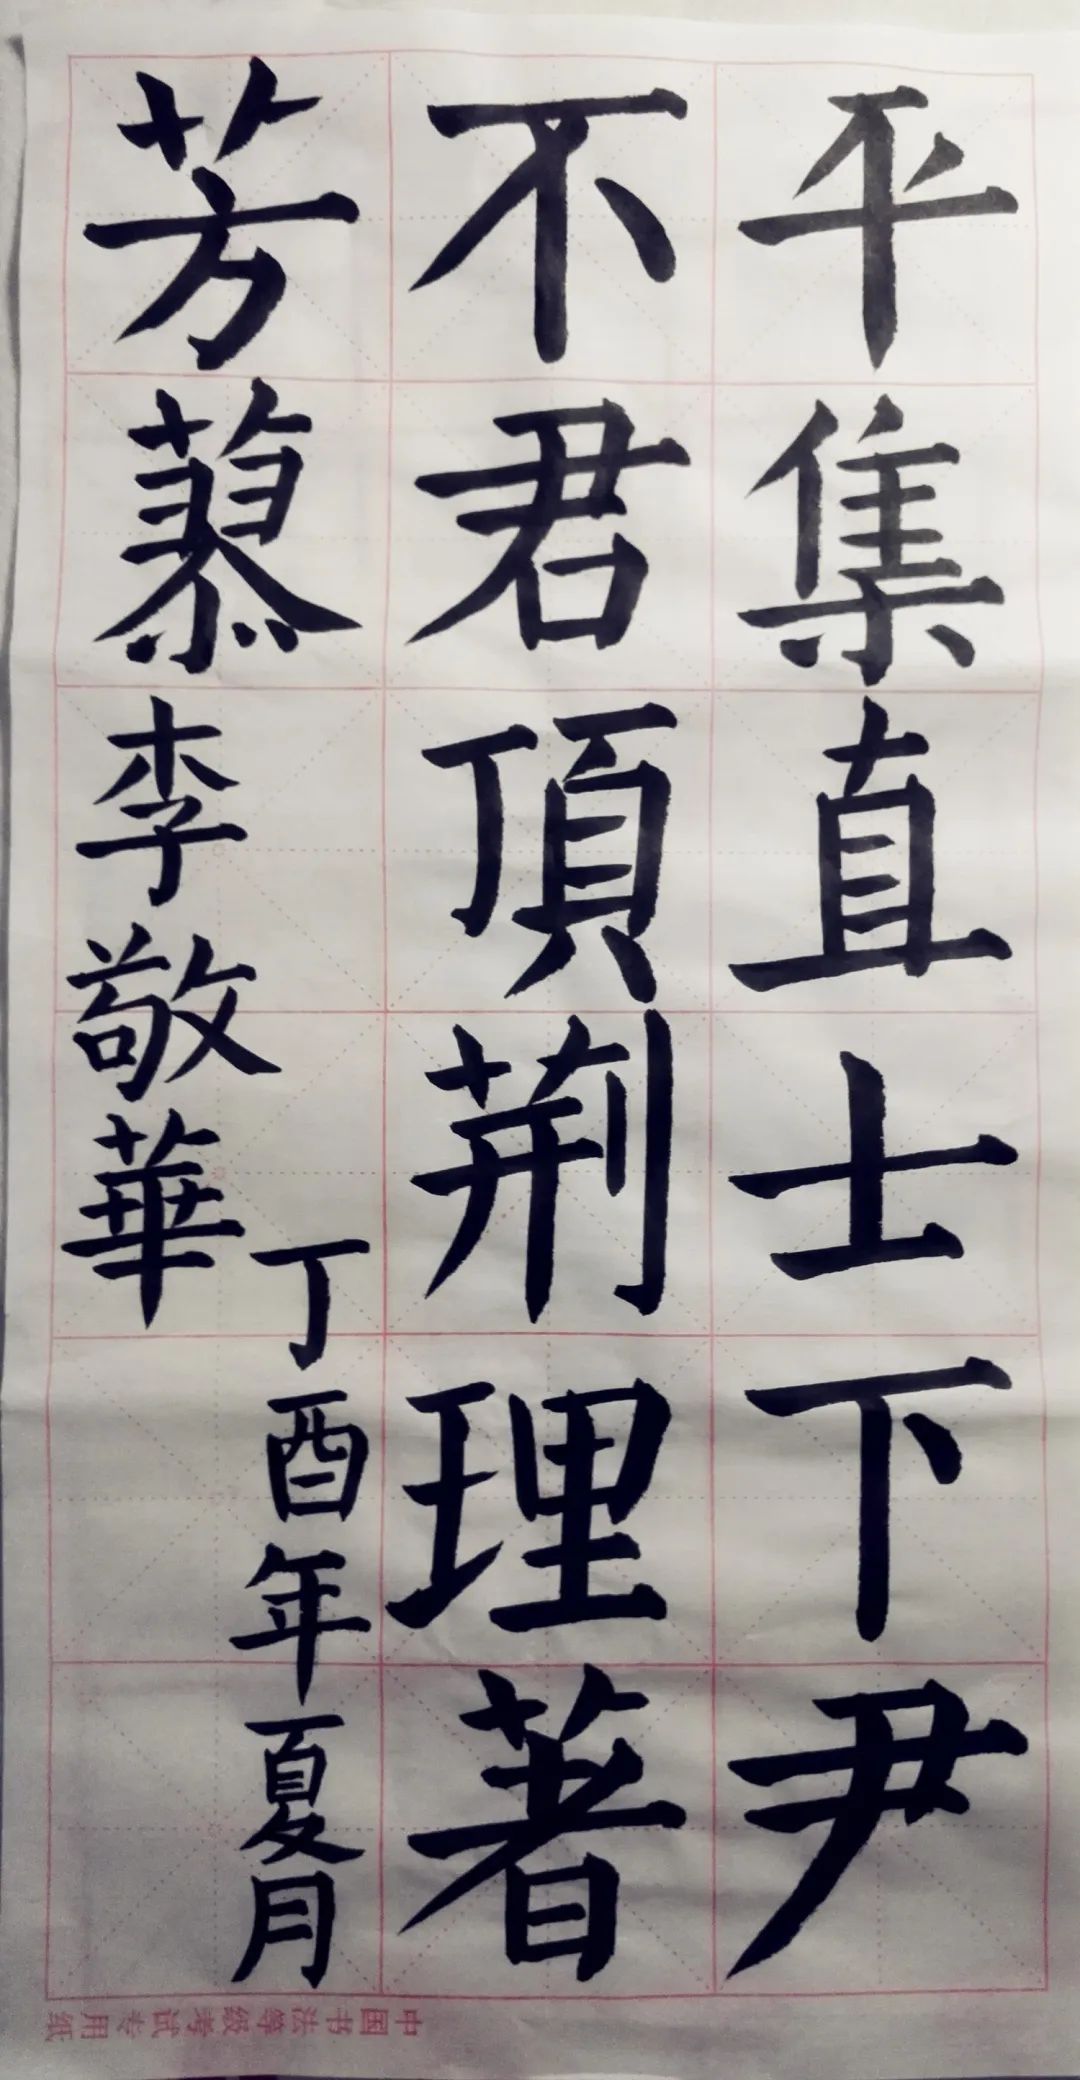 平集直士下尹
不君頂荆理著
芳慕李敬華
丁酉年夏月
中国书法等级考试专用纸